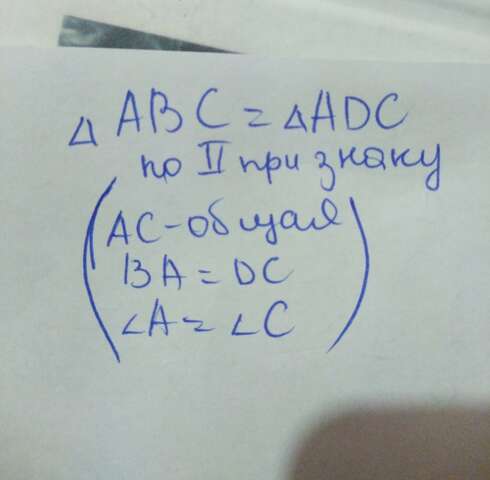 △ ABC = △ADC
по II признаку
AC-общая
BA = DC
∠A = ∠C